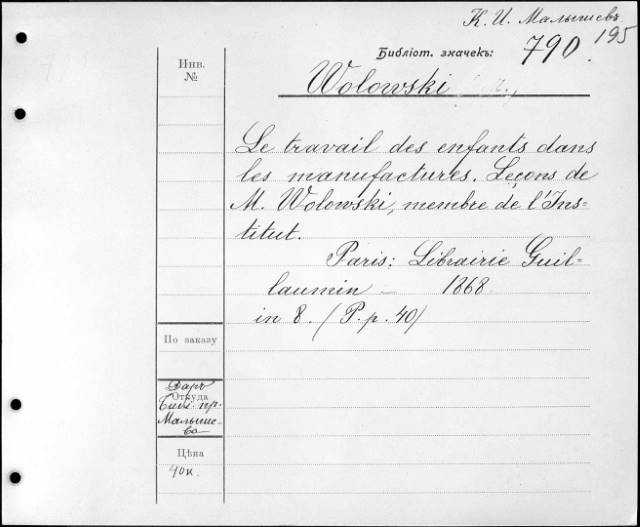 К. И. Малышевъ
195
Библіот. значекъ: 790.
Инв.
№
Wolowski
Le travail des enfants dans
les manufactures. Leçons de
M. Wolowski, membre de l'Ins-
titut.
Paris: Librairie Guil-
laumin — 1868
in 8. (P.p. 40)
По заказу
Даръ
Откуда
Библ. пр.
Малыше-
ва
Цѣна
40 к.